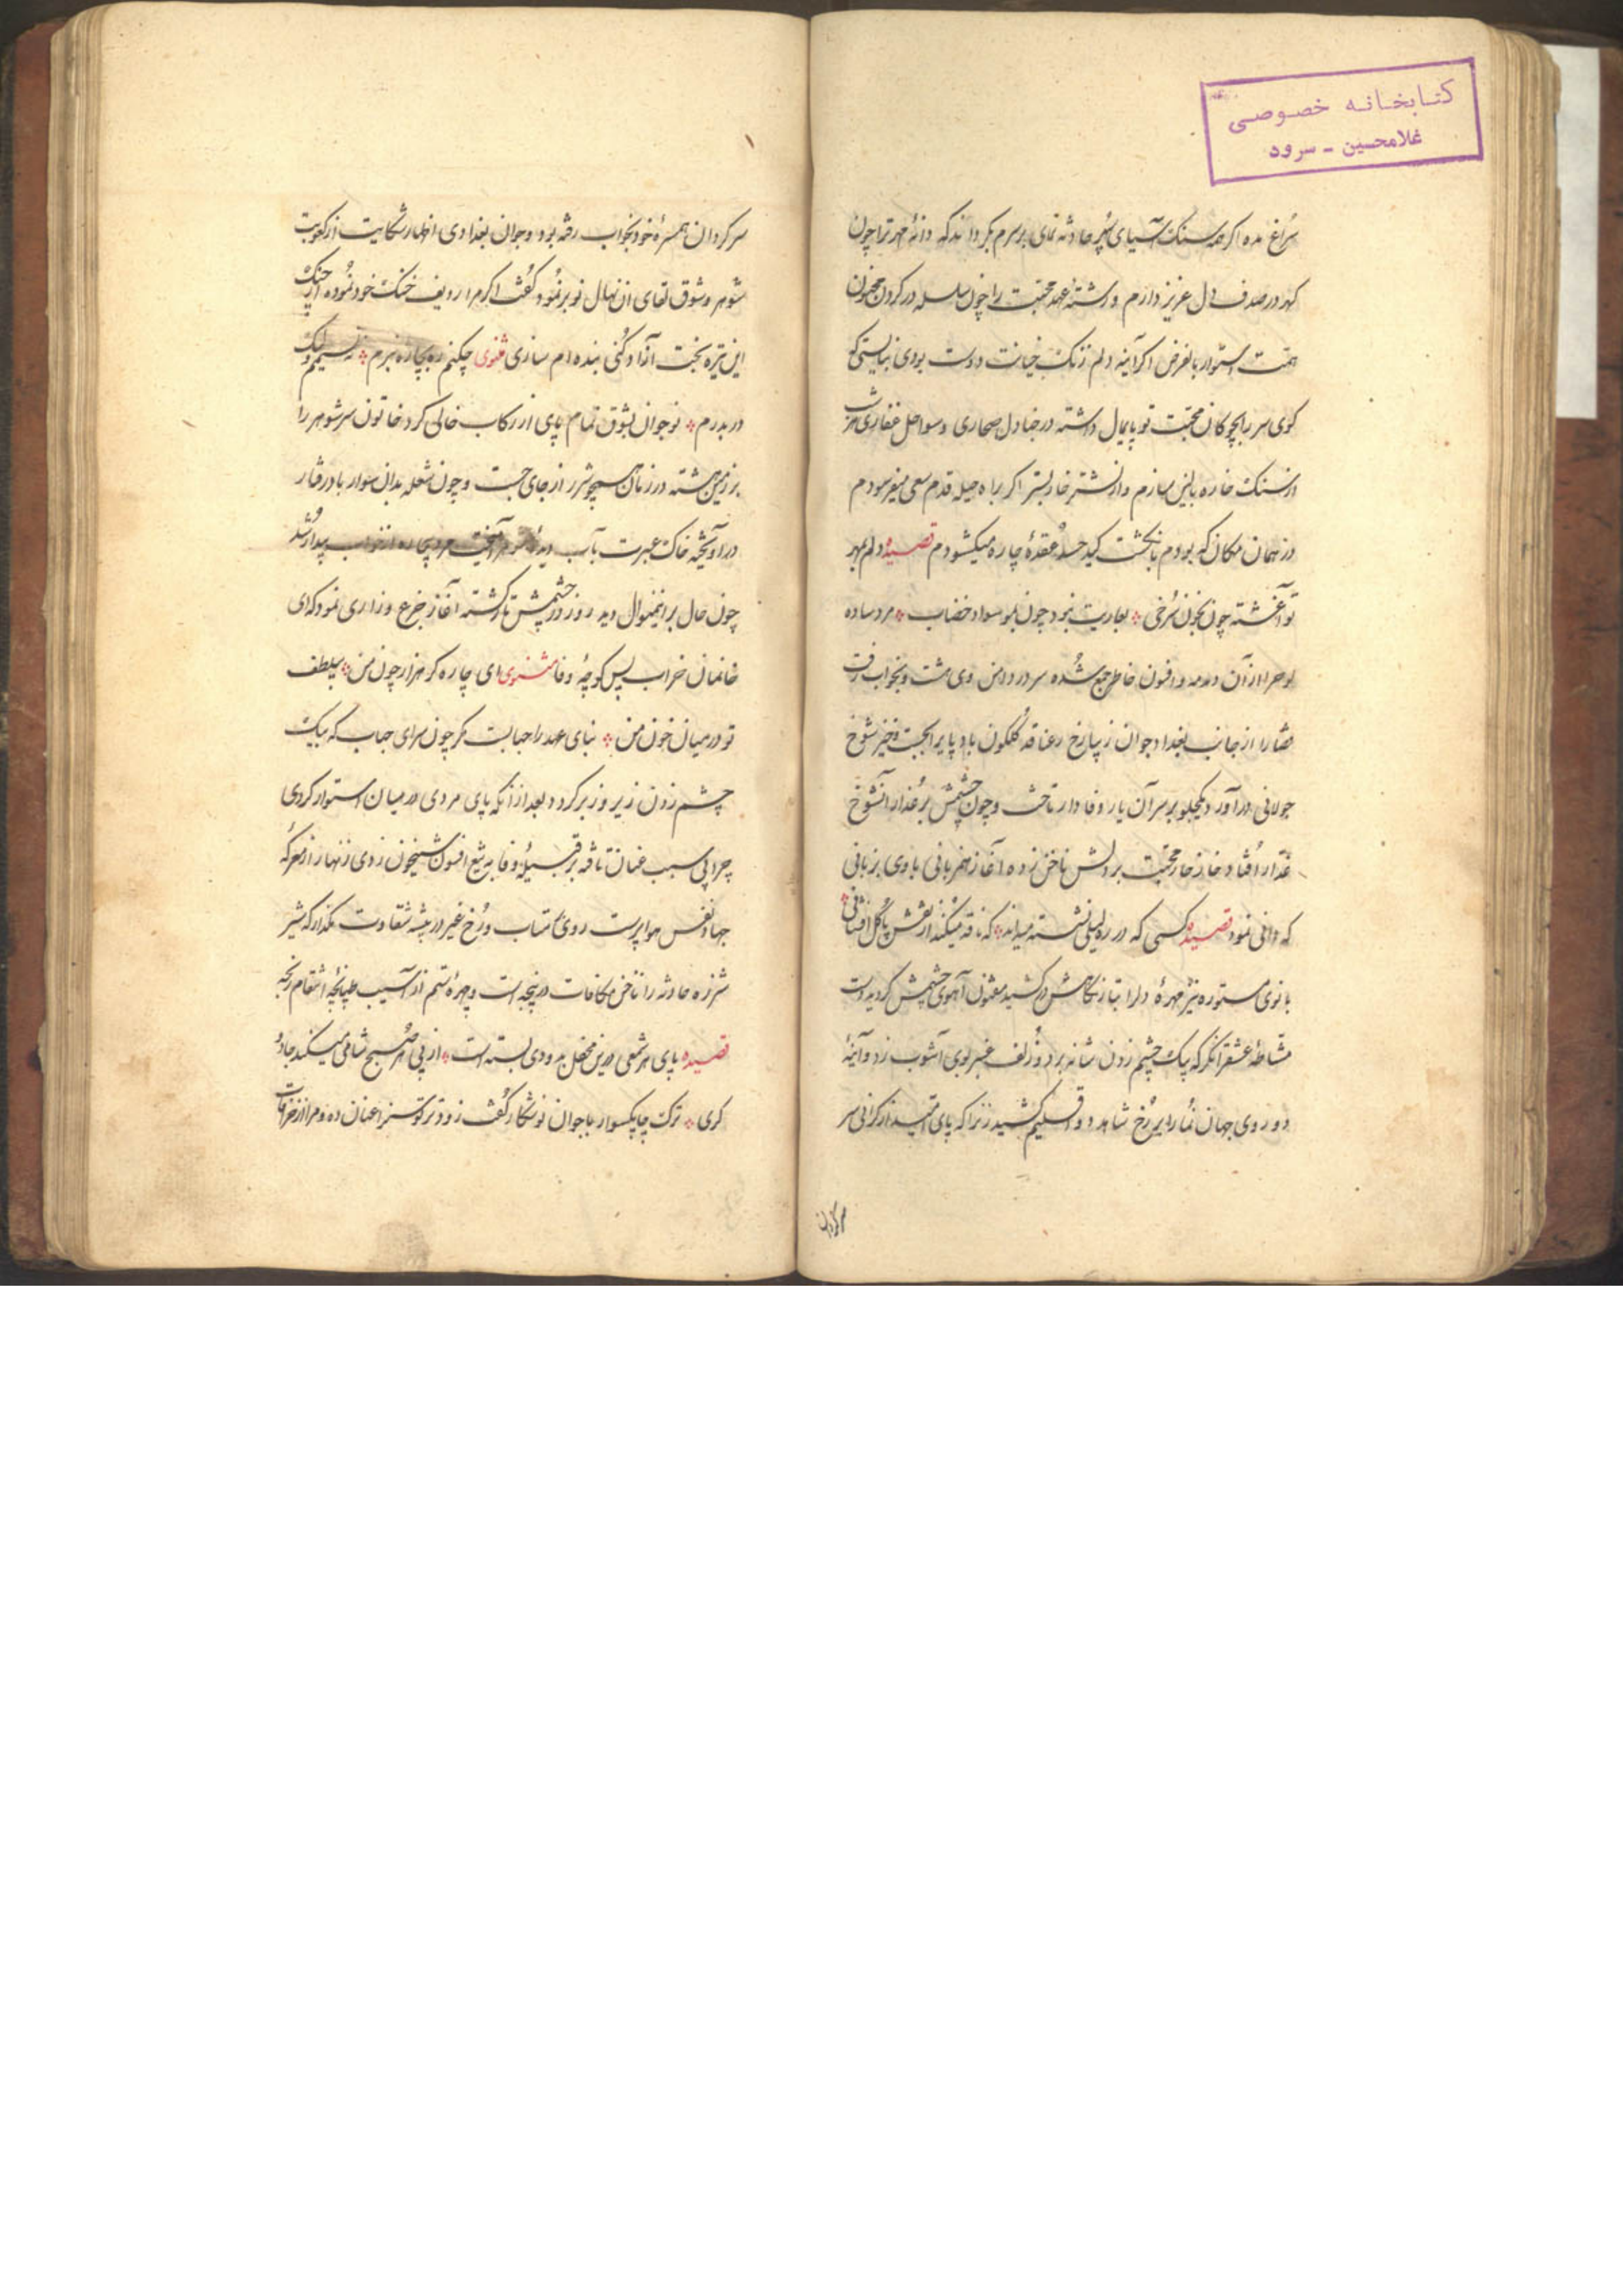 کتابخانه خصوصی
غلامحسین - سرود
سراغ مده اگر همه سنک آسیای سپهر حادثه نمای بر سرم بگرداند که دانهٔ مهر ترا چون
کهر در صدف دل عزیز دارم و رشتهٔ عهد محبت را چون سلسله در کردن مجنون
همت استوار بالفرض اکر آینه دلم زنک خیانت دوست بودی نبایستی که
کوی سر را بچوکان محبت تو پایمال داشته در جنادل صحاری و سواحل
از سنک خاره بالین سازم و از نشتر خار بستر اکر براه حیله قدم سعی میفرسودم
در همان مکان که بودم بانکشت کید حسد عقدهٔ چاره میکشودم قصیده دلم بمهر
تو آغشته چون بخون سرخی بعاریت نبود چون بمو سواد خضاب مرد ساده
لوح را از آن دمدمه و افسون خاطر جمع شده سر در دامن وی هشت و بخواب رفت
قضا را از جانب بغداد جوان زیبارخ رعنا قد کلکون باد پایرا بجست و خیز شوخ
جولانی در آورد و بیکجلو بر سر آن یار وفادار تاخت و چون چشمش بر عذار آنشوخ
غدار افتاد خار خار محبت بر دلش ناخن زده آغاز همزبانی با وی بزبانی
که دانی نمود قصیده کسی که در ره لیلی نشسته میداند که ناقه میکند از نقش پا کل افشانی
بانوی مستوره نیز مهرهٔ دلرا بتار نگاهش در کشید مفتون آهوی چشمش کردید است
مشاطهٔ عشقرا نگر که بیک چشم زدن شانه بر دو زلف عنبر بوی آشوب زد و آینهٔ
دو روی جهان نما را بر رخ شاهد دو اقلیم کشید زن را که پای امید از کرانی سر
سر کردان
سر کردان همسرهٔ خود بخواب رفته بود و جوان بغدادی اظهار شکایت از کعوبت
شوهر و شوق لقای آن نهال نوبر نمود کفت اکر مرا ردیف خنک خود نموده از چنک
این تیره بخت آزاد کنی بنده ام سازی مثنوی چکنم ره بچاره نبرم
در بدرم نوجوان بشوق تمام پای از رکاب خالی کرد خاتون سر شوهر را
بر زمین هشته در زمان همچو شرر از جای جست و چون شعله بدان سوار باد رفتار
در آویخته خاک عبرت بآب دیدهٔ شوهر آمیخت مرد بیچاره از خواب بیدار شد
چون حال بر اینمنوال دید روز در چشمش تار کشته آغاز جزع و زاری نمود که ای
خانمان خراب پس کوچهٔ وفا مثنوی ای چاره کر هزار چون من بیلطف
تو در میان خون من بنای عهد را حبابست مکر چون سرای حباب که بیک
چشم زدن زیر و زبر کردد بعد از آنکه پای مردی در میان استوار کردی
چرا بی سبب عنان تافته بر قبیلهٔ وفا به تیغ افسون شبیخون زدی زنهار از معرکهٔ
جهاد نفس هوا پرست روی متاب و رخ غیر در بیشه شقاوت مکذار که شیر
شرزه حادثه را ناخن مکافات در پنجه است و چهرهٔ ستم از آسیب طپانچهٔ انتقام رنجه
قصیده پای هر شمعی درین محفل بدودی بسته است از پی هر صبح شامی میکند جادو
کری ترک چابکسوار با جوان نو شکار کفت زودتر توسنرا عنان ده و مرا از خرافات